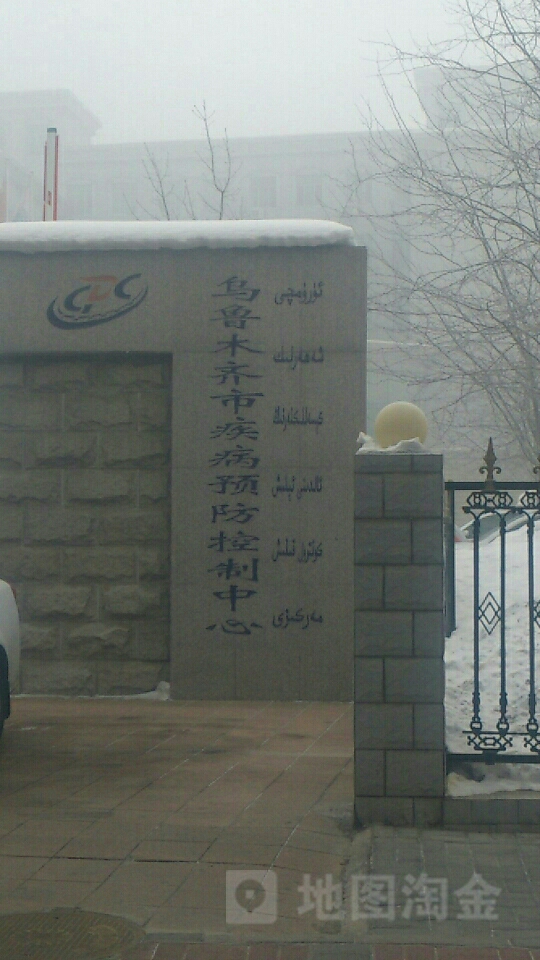 CDC
乌鲁木齐市疾病预防控制中心
ئۈرۈمچى
شەھەرلىك
كېسەللىكلەرنىڭ
ئالدىنى ئېلىش
كونترول قىلىش
مەركىزى
地图淘金